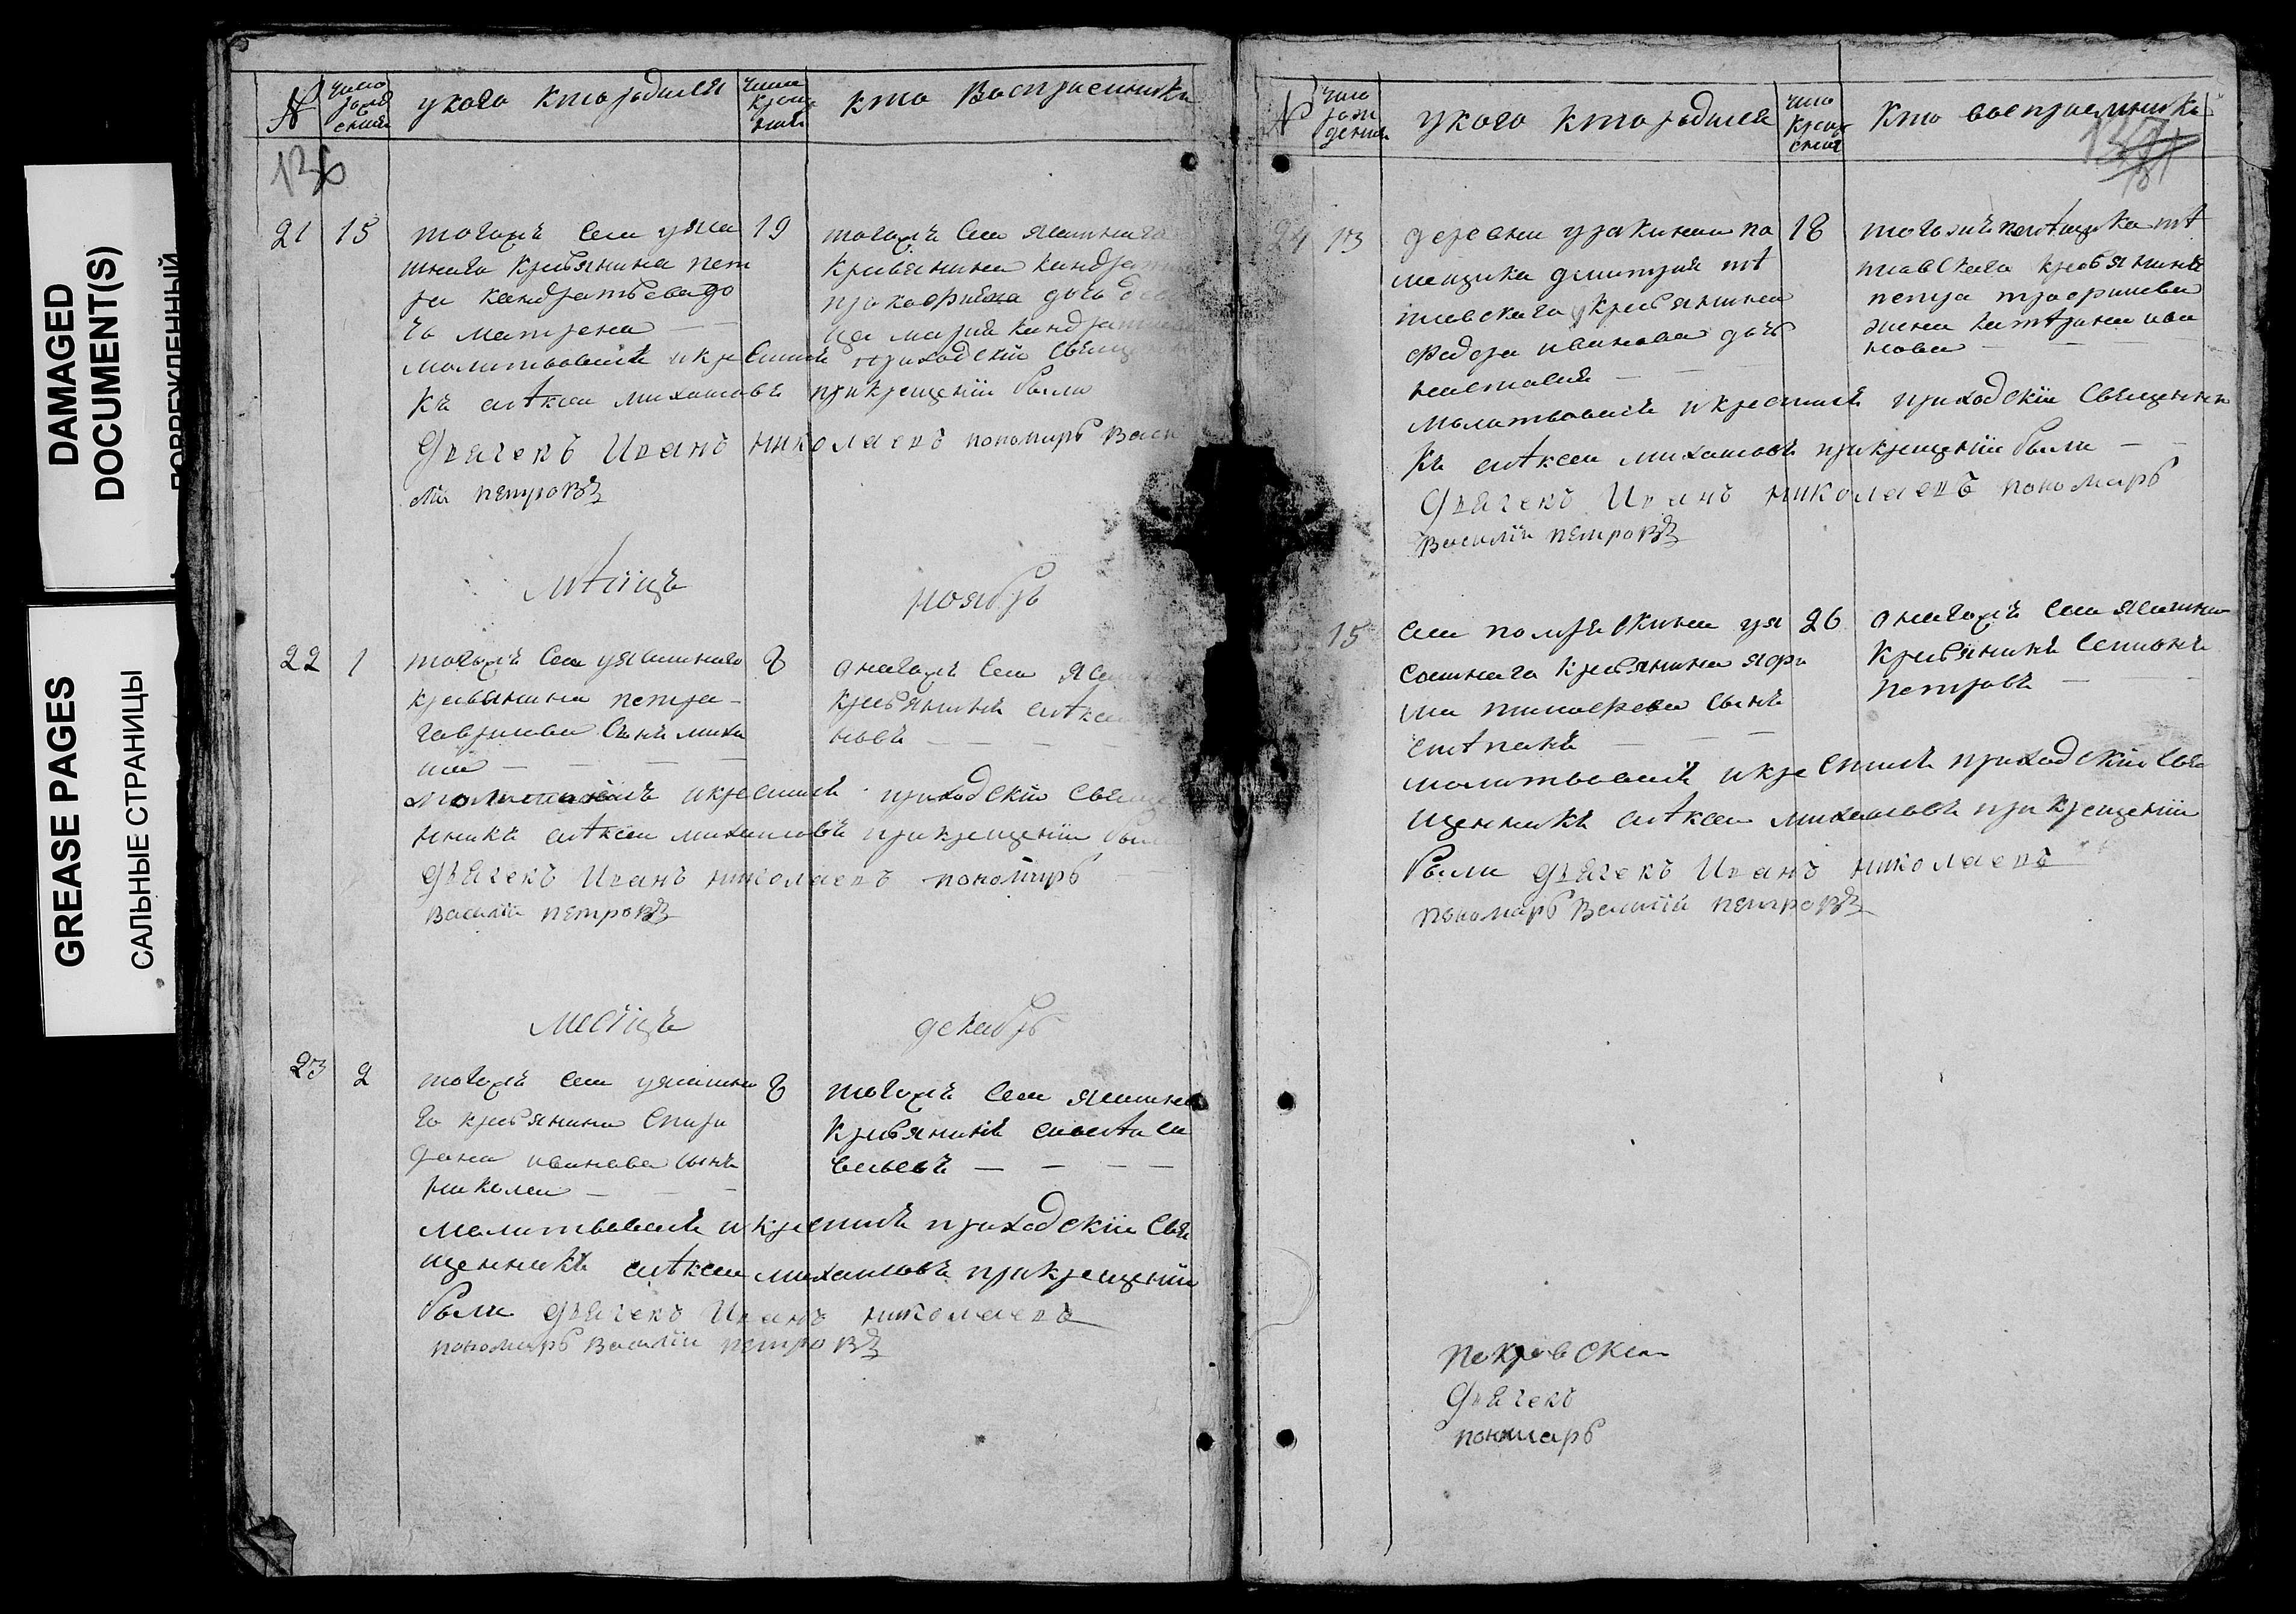 DAMAGED
DOCUMENT(S)
ПОВРЕЖДЕННЫЙ
GREASE PAGES
САЛЬНЫЕ СТРАНИЦЫ
N
число рожд ения
укого кто родился
число крещ ения
кто Воспрiемники
136
21 15
тогожъ села у яса
шнаго крестьянина пет
ра кандратьева до
чь матрена
19
тогожъ села ясашнаго
крестьянина кандрат
прокофьева дочь
ца марья кандратьева
молитвовалъ и крестилъ приходскiи свяще
къ алѣксеи михаиловъ при крещенiи были
Дьячекъ Иванъ николаевъ пономарь Васи
лiи петровъ
мѣсiцъ ноябрь
22 1
тогожъ села у ясашнаго
крестьянина петра
гаврилова сынъ миха
ила
8
онагожъ села
крестьянинъ алѣксеи
новъ
молитвовалъ и крестилъ приходскiи свяще
нникъ алѣксеи михаиловъ при крещенiи были
Дьячекъ Иванъ николаевъ пономарь
Василiи петровъ
месiцъ декабрь
23 2
тогожъ села у ясашна
го крестьянина спири
дона иванова сынъ
николаи
8
тогожъ села ясашна
крестьянинъ
вельевъ
молитвовалъ и крестилъ приходскiи свя
щенникъ алѣксеи михаиловъ при крещенiи
были Дьячекъ Иванъ николаевъ
пономарь Василiи петровъ
N
число рож дения
укого кто родился
число крещ ения
кто воспрiемники
24 13
деревни уракиной по
мещика дмитрия
крестьянина
федора иванова дочь
настасия
18
тогожъ помѣщика
крестьянина
петра трофимова
жена катѣрина ива
нова
молитвовалъ и крестилъ приходскiи священни
къ алѣксеи михаиловъ при крещенiи были
Дьячекъ Иванъ николаевъ пономарь
Василiи петровъ
15
села у я
сашнаго крестьянина
тимофеева сынъ
стѣпанъ
26
онагожъ села ясашна
крестьянинъ семионъ
петровъ
молитвовалъ и крестилъ приходскiи свя
щенникъ алѣксеи михаиловъ при крещенiи
были Дьячекъ Иванъ николаевъ
пономарь Василiи петровъ
покровскои
Дьячекъ
пономарь